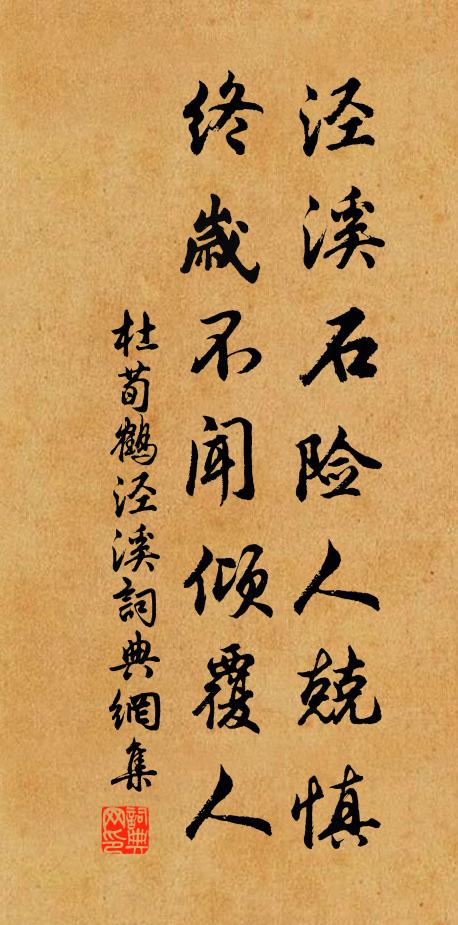 泾溪石险人兢慎
终岁不闻倾覆人
杜荀鶴泾溪詞典網集
詞典网印